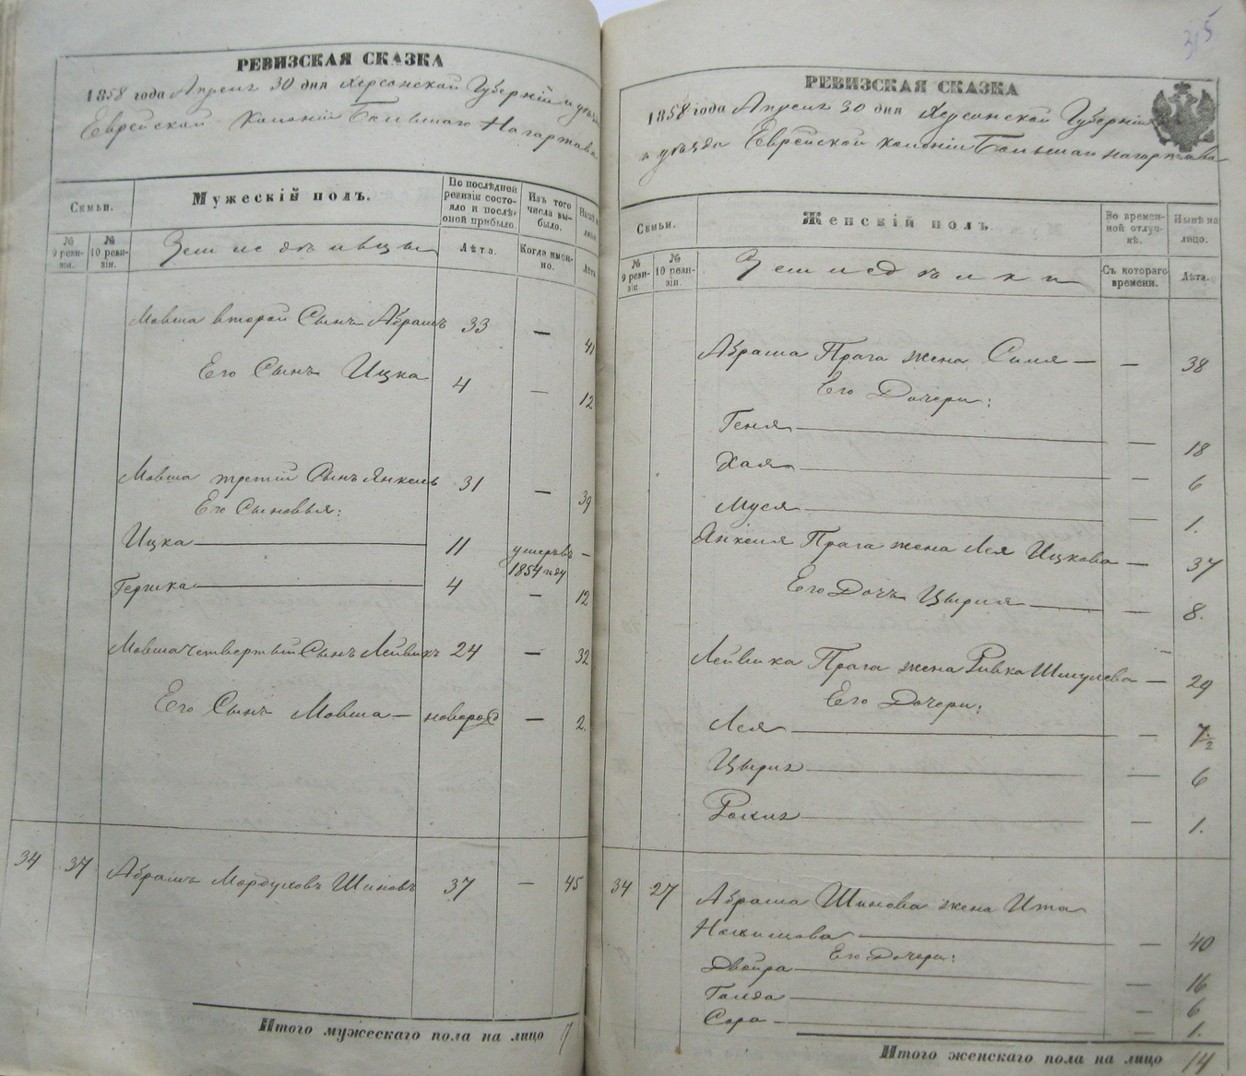 РЕВИЗСКАЯ СКАЗКА
1858 года Апреля 30 дня Херсонской Губерніи и уѣзда
Еврейской Колоніи Большаго Нагартава
Семьи.
Мужескій полъ.
По послѣдней ревизіи состояло и послѣ оной прибыло.
Изъ того числа выбыло.
№ 9 ревизіи.
№ 10 ревизіи.
Земледѣльцы
Лѣта.
Когда именно.
Лѣта
Мовша второй Сынъ Абрамъ 33 — 41
Его Сынъ Ицка 4 — 12
Мовша третій Сынъ Янкель 31 — 39
Его Сыновья:
Ицка 11 умеръ въ 1854 году —
Гершка 4 — 12
Мовша четвертый Сынъ Лейвикъ 24 — 32
Его Сынъ Мовша — новорожд — 2.
34 37 Абрамъ Мордуховъ Шиновъ 37 — 45
Итого мужескаго пола на лицо 7
315
РЕВИЗСКАЯ СКАЗКА
1858 года Апреля 30 дня Херсонской Губерніи
и уѣзда Еврейской колоніи Большаго Нагартава
Семьи.
Женскій полъ.
Во временной отлучкѣ.
Нынѣ на лицо.
№ 9 ревизіи.
№ 10 ревизіи.
Земледѣлки
Съ котораго времени.
Лѣта.
Абрама Прага жена Симя — — 38
Его Дочери:
Геня — 18
Хая — 6
Муся — 1.
Янкеля Прага жена Лея Ицкова — — 37
Его Дочь Цырля — 8.
Лейвика Прага жена Ривка Шмулева — 29
Его Дочери:
Лея — 7 1/2
Цыпля — 6
Рохля — 1.
34 27 Абрама Шинова жена Ита
— 40
Его Дочери:
Двейра — 16
Голда — 6
Сора — 1.
Итого женскаго пола на лицо 14